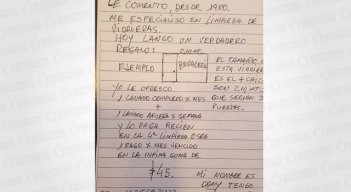 LE COMENTO, DESDE 1980.
ME ESPECIALISO EN LIMPIEZA DE
VIDRIERAS.
HOY LANSO UN VERDADERO
REGALO:
EJEMPLO
EL TAMAÑO
ESTA VIDRIER
ES EL + CHICO
SON 2,10 MT.
QUE SERIAN 3
PUERTAS.
YO LE OFRESCO
1 LAVADO COMPLETO X MES
+
1 LAVADO AFUERA X SEMANA
Y LO PAGA RECIEN
EN LA 4ª LIMPIEZA OSEA
1 PAGO X MES VENCIDO
EN LA INFIMA SUMA DE
$45.
MI NOMBRE ES
TENGO